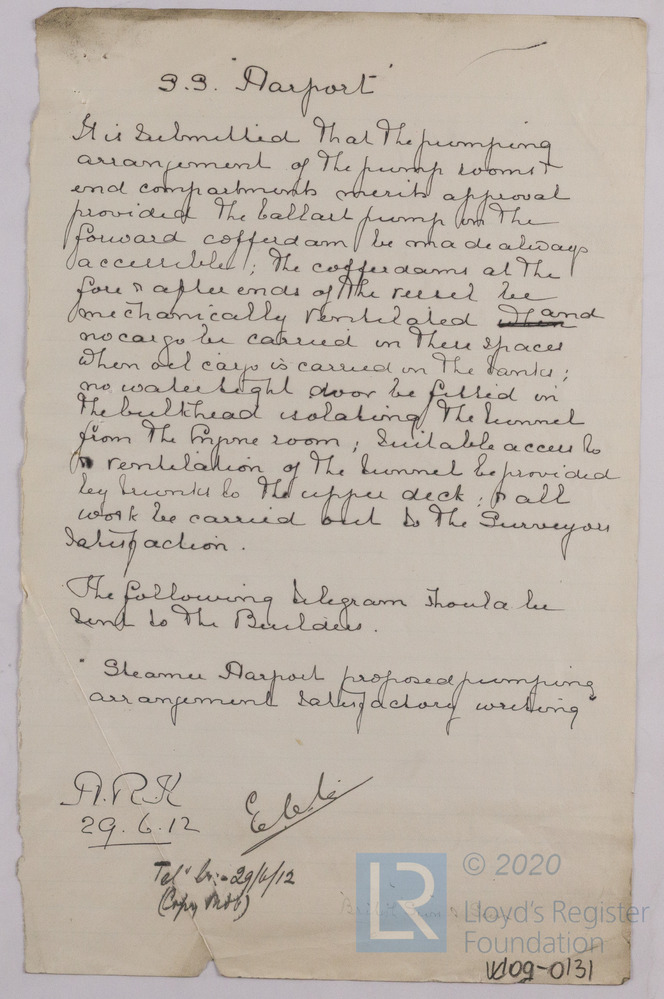 S.S. "Aarport"
It is submitted that the pumping
arrangement of the pump rooms &
end compartments merits approval
provided the ballast pump in the
forward cofferdam be made always
accessible; the cofferdams at the
fore & after ends of the vessel be
mechanically ventilated and
no cargo be carried in these spaces
when oil cargo is carried in the tanks;
no watertight door be fitted in
the bulkhead isolating the tunnel
from the Engine room; suitable access to
& ventilation of the tunnel be provided
by trunks to the upper deck; & all
work be carried out to the Surveyors
satisfaction.
The following telegram should be
sent to the Builders.
"Steamer Aarport proposed pumping
arrangement satisfactory writing"
A.R.K
29.6.12
Tel 29/6/12
(Copy
© 2020
LR
Lloyd's Register
Foundation
W09-0131